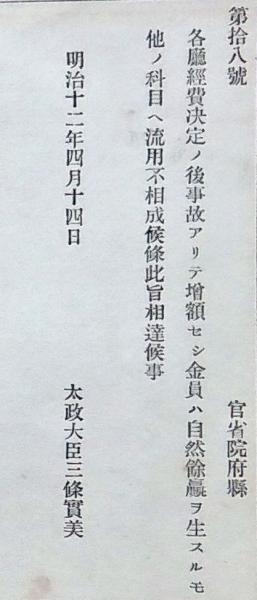 第拾八號
官省院府縣
各廳經費決定ノ後事故アリテ增額セシ金員ハ自然餘贏ヲ生スルモ
他ノ科目ヘ流用不相成候條此旨相達候事
明治十二年四月十四日
太政大臣三條實美